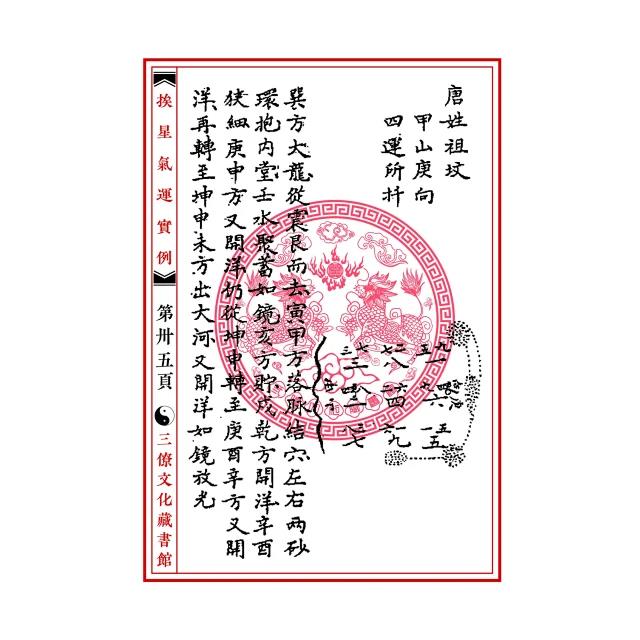 唐姓祖坟
甲山庚向
四運所扦
巽方大龍從震艮而去寅甲方落脉結穴左右兩砂
環抱内堂壬水聚蓄如鏡亥方貯戌乾方開洋辛酉
狭細庚申方又開洋仍從坤申轉至庚酉辛方又開
洋再轉至坤申未方出大河又開洋如鏡放光
挨星氣運實例
第卅五頁
三僚文化藏書館